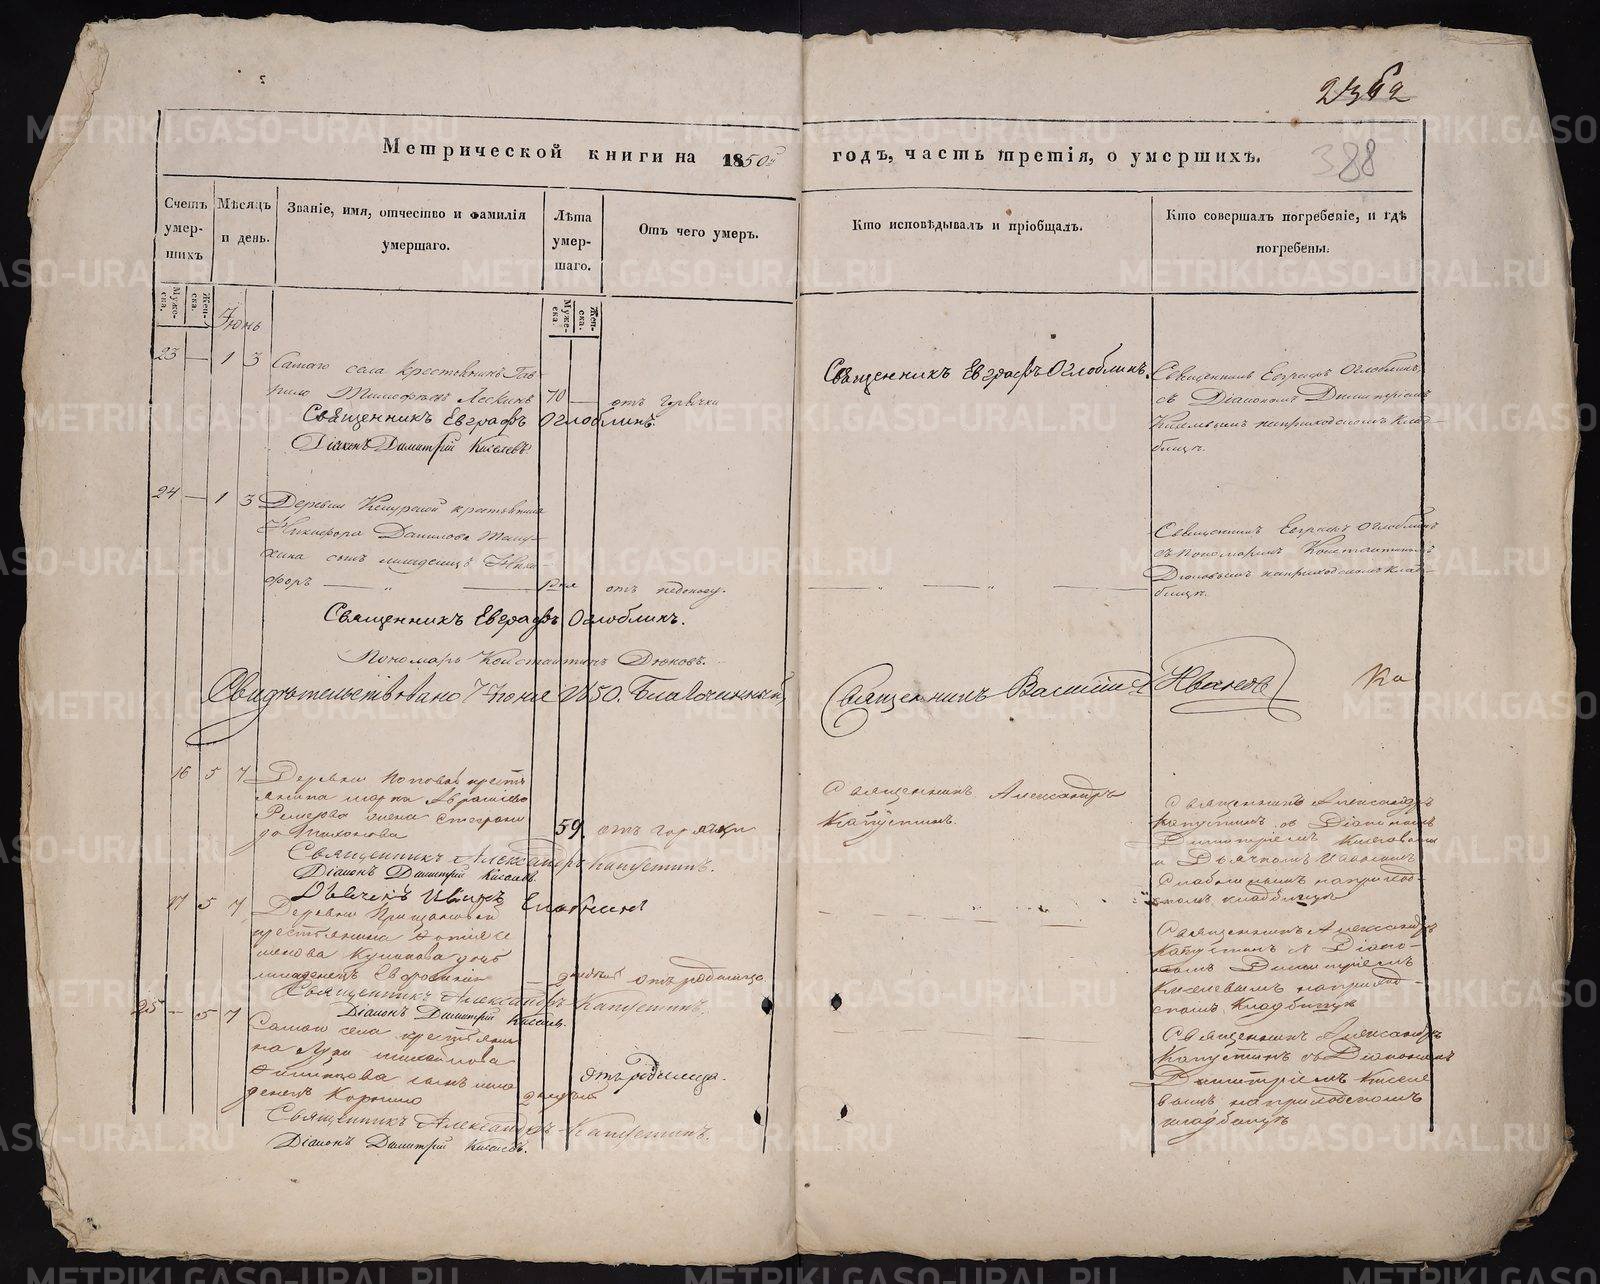 2362
388
Метрической книги на 1850й годъ, часть третія, о умершихъ.
Счетъ умершихъ
Мѣсяцъ и день.
Званіе, имя, отчество и фамилія умершаго.
Лѣта умершаго.
Отъ чего умеръ.
Кто исповѣдывалъ и пріобщалъ.
Кто совершалъ погребеніе, и гдѣ погребены.
Мужеска.
Женска.
Мужеска.
Женска.
Іюнь
23 — 1 3 Самаго села крестьянинъ Гав-
70 — отъ горячки
Священникъ Евграфъ Оглоблинъ.
Діаконъ Димитрій Киселевъ
Священникъ Евграфъ Оглоблинъ.
Священникъ Евграфъ Оглоблинъ
съ Діакономъ Димитріемъ
Киселевымъ на приходскомъ клад-
бищѣ.
24 — 1 3 Деревни крестьянина
Никифора Данилова
сынъ младенецъ Ники-
форъ — „ —
отъ
Священникъ Евграфъ Оглоблинъ.
Пономарь Константинъ Дюковъ.
Священникъ Евграфъ Оглоблинъ
съ пономаремъ Константиномъ
Дюковымъ на приходскомъ клад-
бищѣ.
Свидѣтельствовано 7 Іюня 1850. Благочинный, Священникъ Василій Ивановъ
16 5 7 Деревни Поповой кресть-
янина Марка
жена Степани-
да
59 отъ горячки
Священникъ Александръ Капустинъ.
Діаконъ Димитрій Киселевъ.
Дьячекъ Иванъ
Священникъ Александръ
Капустинъ.
Священникъ Александръ
Капустинъ съ Діакономъ
Димитріемъ Киселевымъ
и Дьячкомъ Иваномъ
на приход-
скомъ кладбищѣ
17 5 7 Деревни
крестьянина
дочь
младенецъ
отъ родимца
Священникъ Александръ Капустинъ.
Діаконъ Димитрій Киселевъ.
Священникъ Александръ
Капустинъ съ Діако-
номъ Димитріемъ
Киселевымъ на приход-
скомъ кладбищѣ
25 — 5 7
Самаго села крестьяни-
на Луки Михайлова
сынъ мла-
денецъ Корнило
отъ родимца.
Священникъ Александръ Капустинъ.
Діаконъ Димитрій Киселевъ.
Священникъ Александръ
Капустинъ съ Діакономъ
Димитріемъ Киселе-
вымъ на приходскомъ
кладбищѣ
METRIKI.GASO-URAL.RU